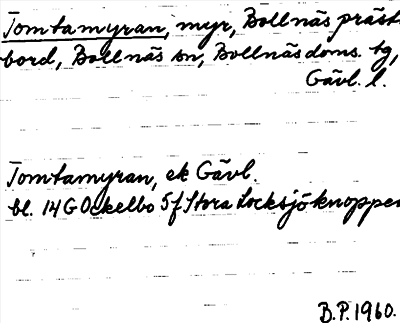 Tomtamyran, myr, Bollnäs präst
bord, Bollnäs sn, Bollnäs doms. tg,
Gävl. l.
Tomtamyran, ek Gävl.
bl. 14G Ockelbo 5f Stora Locksjöknoppen
B.P. 1960.